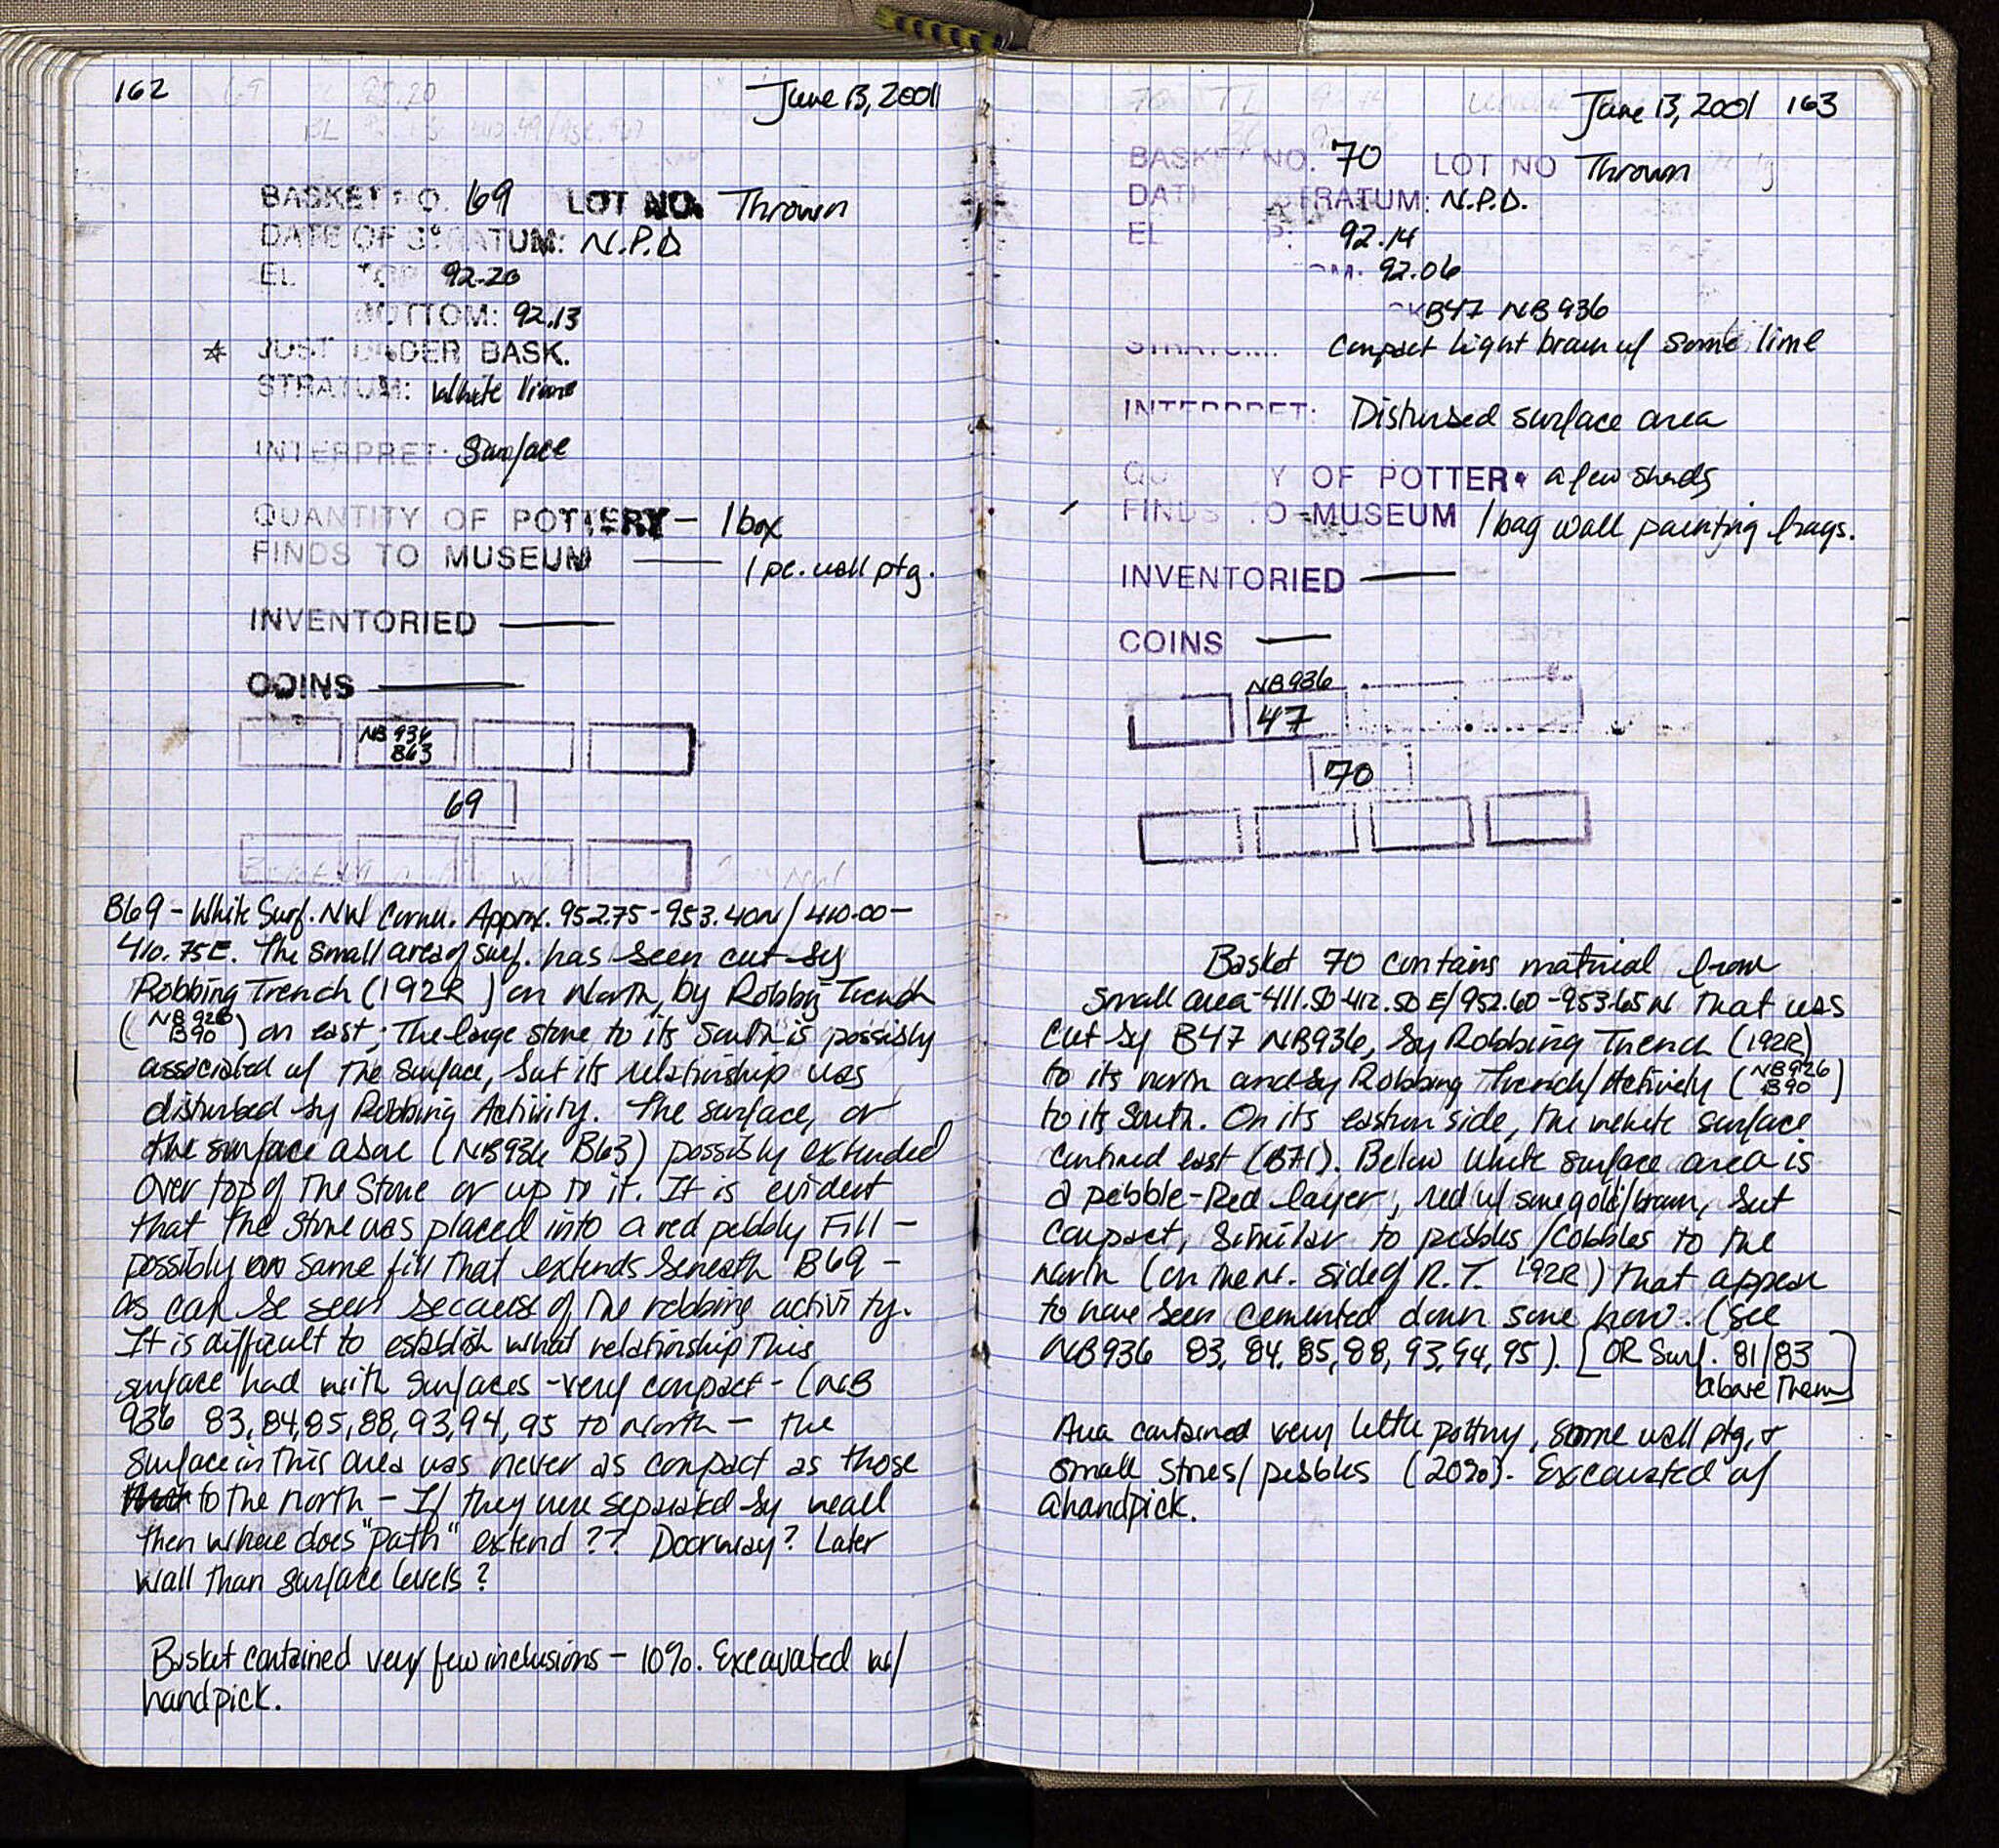 162
June 13, 2001
BASKET NO. 69 LOT NO. Thrown
DATE OF STRATUM: N.P.D
EL TOP 92.20
BOTTOM: 92.13
* JUST UNDER BASK.
STRATUM: White lime
INTERPRET: Surface
QUANTITY OF POTTERY - 1 box
FINDS TO MUSEUM — 1 pc. wall ptg.
INVENTORIED —
COINS —
NB 936
B63
69
B69 - White Surf. NW Corner. Approx. 952.75 - 953.40N / 410.00 -
410.75E. The small area of surf. has been cut by
Robbing Trench (192R) on North, by Robbing Trench
(NB 926 B90) on east; The large stone to its south is possibly
associated w/ the surface, but its relationship was
disturbed by Robbing Activity. The surface, or
the surface above (NB936 B63) possibly extended
over top of the stone or up to it. It is evident
that the stone was placed into a red pebbly Fill -
possibly same fill that extends beneath B69 -
as can be seen because of the robbing activity.
It is difficult to establish what relationship this
surface had with surfaces - very compact - (NB
936 83, 84, 85, 88, 93, 94, 95 to North - the
surface in this area was never as compact as those
to the north - If they were separated by wall
then where does "path" extend ?? Doorway? Later
wall than surface levels?
Basket contained very few inclusions - 10%. Excavated w/
handpick.
June 13, 2001 163
BASKET NO. 70 LOT NO Thrown
DATE STRATUM: N.P.D.
EL 92.14
92.06
B47 NB936
Compact light brown w/ some lime
INTERPRET: Disturbed surface area
QU Y OF POTTER a few sherds
FINDS TO MUSEUM 1 bag wall painting frags.
INVENTORIED —
COINS —
NB936
47
70
Basket 70 contains material from
small area - 411.50-412.50 E/952.60-953.65N that was
cut by B47 NB936, by Robbing Trench (192R)
to its north and by Robbing Trench/Activity (NB926 B90)
to its South. On its eastern side, the white surface
continued east (B71). Below white surface area is
a pebble-Red layer, red w/ some gold/brown, but
compact, similar to pebbles/cobbles to the
north (on the N. side of R.T. 192R) that appear
to have been cemented down some how. (see
NB936 83, 84, 85, 88, 93, 94, 95). [OR Surf. 81/83
above them]
Area contained very little pottery, some wall ptg, &
small stones/pebbles (20%). Excavated w/
a handpick.